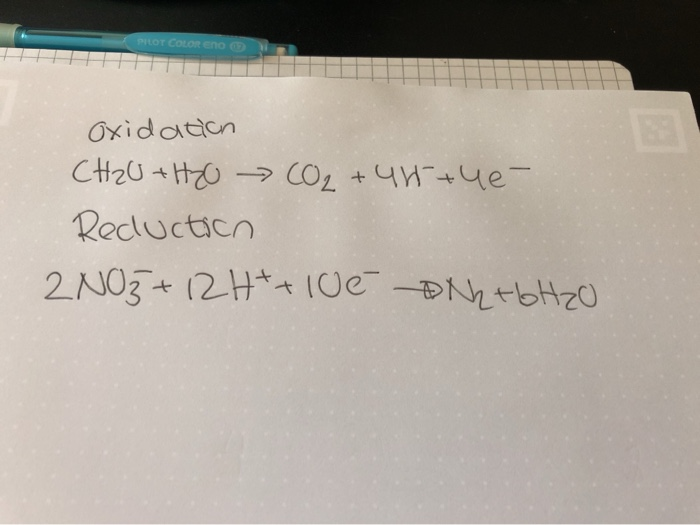 PILOT COLOR ENO 0.7
Oxidation
CH2O + H2O → CO2 + 4H⁻ + 4e⁻
Reduction
2NO3⁻ + 12H⁺ + 10e⁻ → N2 + 6H2O